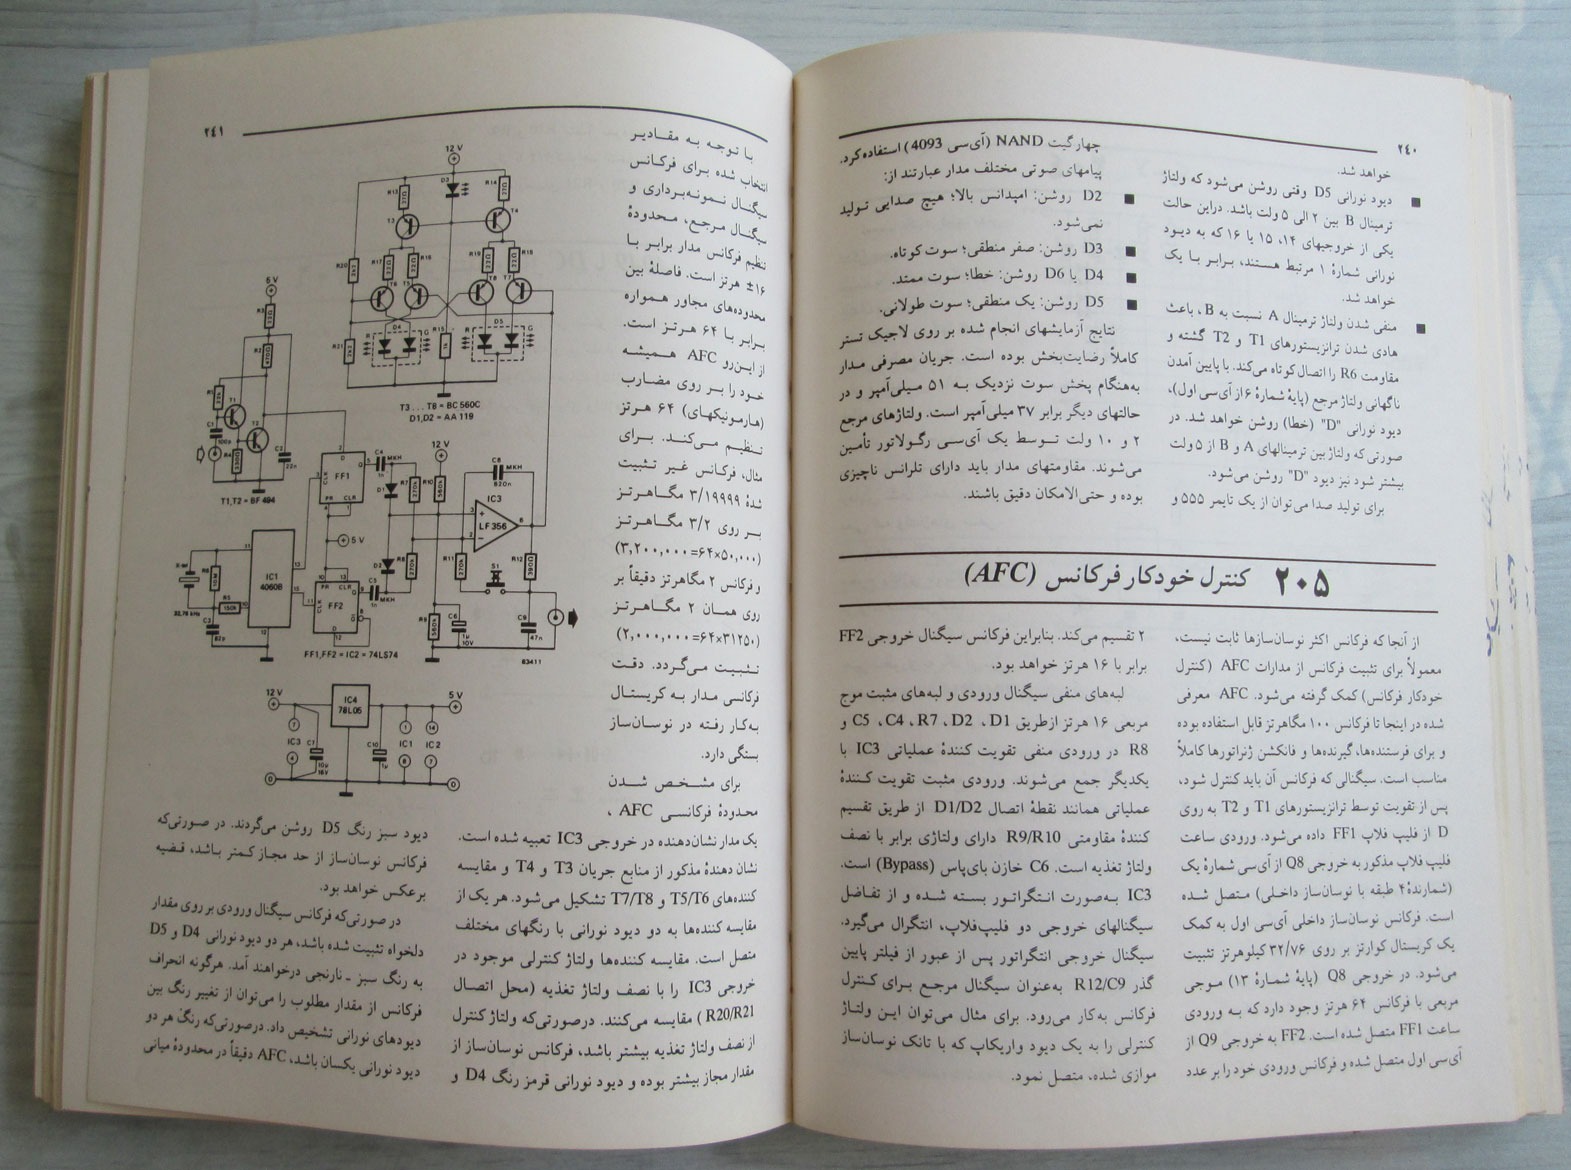 ۲۴۰
خواهد شد.
دیود نورانی D5 وقتی روشن می‌شود که ولتاژ
ترمینال B بین ۲ الی ۵ ولت باشد. دراین حالت
یکی از خروجیهای ۱۴، ۱۵ یا ۱۶ که به دیود
نورانی شمارهٔ ۱ مرتبط هستند، برابر با یک
خواهد شد.
منفی شدن ولتاژ ترمینال A نسبت به B، باعث
هادی شدن ترانزیستورهای T1 و T2 گشته و
مقاومت R6 را اتصال کوتاه می‌کند. با پایین آمدن
ناگهانی ولتاژ مرجع (پایهٔ شمارهٔ ۶ از آی‌سی اول)،
دیود نورانی "D" (خطا) روشن خواهد شد. در
صورتی‌که ولتاژ بین ترمینالهای A و B از ۵ ولت
بیشتر شود نیز دیود "D" روشن می‌شود.
برای تولید صدا می‌توان از یک تایمر ۵۵۵ و
چهارگیت NAND (آی‌سی 4093) استفاده‌کرد.
پیامهای صوتی مختلف مدار عبارتند از:
D2 روشن: امپدانس بالا؛ هیچ صدایی تولید
نمی‌شود.
D3 روشن: صفر منطقی؛ سوت کوتاه.
D4 یا D6 روشن: خطا؛ سوت ممتد.
D5 روشن: یک منطقی؛ سوت طولانی.
نتایج آزمایشهای انجام شده بر روی لاجیک تستر
کاملاً رضایت‌بخش بوده است. جریان مصرفی مدار
به‌هنگام پخش سوت نزدیک به ۵۱ میلی‌آمپر و در
حالتهای دیگر برابر ۳۷ میلی‌آمپر است. ولتاژهای مرجع
۲ و ۱۰ ولت توسط یک آی‌سی رگولاتور تأمین
می‌شوند. مقاومتهای مدار باید دارای تلرانس ناچیزی
بوده و حتی‌الامکان دقیق باشند.
۲۰۵ کنترل خودکار فرکانس (AFC)
از آنجا که فرکانس اکثر نوسان‌سازها ثابت نیست،
معمولاً برای تثبیت فرکانس از مدارات AFC (کنترل
خودکار فرکانس) کمک گرفته می‌شود. AFC معرفی
شده در اینجا تا فرکانس ۱۰۰ مگاهرتز قابل استفاده بوده
و برای فرستنده‌ها، گیرنده‌ها و فانکشن ژنراتورها کاملاً
مناسب است. سیگنالی که فرکانس آن باید کنترل شود،
پس از تقویت توسط ترانزیستورهای T1 و T2 به روی
D از فلیپ فلاپ FF1 داده می‌شود. ورودی ساعت
فلیپ فلاپ مذکور به خروجی Q8 از آی‌سی شمارهٔ یک
(شمارندهٔ ۴ طبقه با نوسان‌ساز داخلی) متصل شده
است. فرکانس نوسان‌ساز داخلی آی‌سی اول به کمک
یک کریستال کوارتز بر روی ۳۲/۷۶ کیلوهرتز تثبیت
می‌شود. در خروجی Q8 (پایهٔ شمارهٔ ۱۳) موجی
مربعی با فرکانس ۶۴ هرتز وجود دارد که به ورودی
ساعت FF1 متصل شده است. FF2 به خروجی Q9 از
آی‌سی اول متصل شده و فرکانس ورودی خود را بر عدد
۲ تقسیم می‌کند. بنابراین فرکانس سیگنال خروجی FF2
برابر با ۱۶ هرتز خواهد بود.
لبه‌های منفی سیگنال ورودی و لبه‌های مثبت موج
مربعی ۱۶ هرتز ازطریق C5 ، C4 ، R7 ، D2 ، D1 و
R8 در ورودی منفی تقویت کنندهٔ عملیاتی IC3 با
یکدیگر جمع می‌شوند. ورودی مثبت تقویت کنندهٔ
عملیاتی همانند نقطهٔ اتصال D1/D2 از طریق تقسیم
کنندهٔ مقاومتی R9/R10 دارای ولتاژی برابر با نصف
ولتاژ تغذیه است. C6 خازن بای‌پاس (Bypass) است.
IC3 به‌صورت انتگراتور بسته شده و از تفاضل
سیگنالهای خروجی دو فلیپ‌فلاپ، انتگرال می‌گیرد.
سیگنال خروجی انتگراتور پس از عبور از فیلتر پایین
گذر R12/C9 به‌عنوان سیگنال مرجع برای کنترل
فرکانس به‌کار می‌رود. برای مثال می‌توان این ولتاژ
کنترلی را به یک دیود واریکاپ که با تانک نوسان‌ساز
موازی شده، متصل نمود.
۲۴۱
با توجه به مقادیر
انتخاب شده برای فرکانس
سیگنال نمونه‌برداری و
سیگنال مرجع، محدودهٔ
تنظیم فرکانس مدار برابر با
±۱۶ هرتز است. فاصلهٔ بین
محدوده‌های مجاور همواره
برابر با ۶۴ هرتز است.
از این‌رو AFC همیشه
خود را بر روی مضارب
(هارمونیکهای) ۶۴ هرتز
تنظیم می‌کند. برای
مثال، فرکانس غیر تثبیت
شدهٔ ۳/۱۹۹۹۹ مگاهرتز
بر روی ۳/۲ مگاهرتز
(۳,۲۰۰,۰۰۰=۶۴×۵۰,۰۰۰)
و فرکانس ۲ مگاهرتز دقیقاً بر
روی همان ۲ مگاهرتز
(۲,۰۰۰,۰۰۰=۶۴×۳۱۲۵۰)
تثبیت می‌گردد. دقت
فرکانسی مدار به کریستال
به‌کار رفته در نوسان‌ساز
بستگی دارد.
برای مشخص شدن
محدودهٔ فرکانسی AFC ،
یک مدار نشان‌دهنده در خروجی IC3 تعبیه شده است.
نشان دهندهٔ مذکور از منابع جریان T3 و T4 و مقایسه
کننده‌های T5/T6 و T7/T8 تشکیل می‌شود. هر یک از
مقایسه کننده‌ها به دو دیود نورانی با رنگهای مختلف
متصل است. مقایسه کننده‌ها ولتاژ کنترلی موجود در
خروجی IC3 را با نصف ولتاژ تغذیه (محل اتصال
R20/R21 ) مقایسه می‌کنند. درصورتی‌که ولتاژ کنترل
از نصف ولتاژ تغذیه بیشتر باشد، فرکانس نوسان‌ساز از
مقدار مجاز بیشتر بوده و دیود نورانی قرمز رنگ D4 و
دیود سبز رنگ D5 روشن می‌گردند. در صورتی‌که
فرکانس نوسان‌ساز از حد مجاز کمتر باشد، قضیه
برعکس خواهد بود.
در صورتی‌که فرکانس سیگنال ورودی بر روی مقدار
دلخواه تثبیت شده باشد، هر دو دیود نورانی D4 و D5
به رنگ سبز ـ نارنجی درخواهند آمد. هرگونه انحراف
فرکانس از مقدار مطلوب را می‌توان از تغییر رنگ بین
دیودهای نورانی تشخیص داد. درصورتی‌که رنگ هر دو
دیود نورانی یکسان باشد، AFC دقیقاً در محدودهٔ میانی
12 V
T3 . . . T8 = BC 560C
D1,D2 = AA 119
5 V
T1,T2 = BF 494
12 V
IC3
LF 356
FF1
5 V
IC1
4060B
FF2
FF1,FF2 = IC2 = 74LS74
83411
12 V
IC4
78L05
5 V
IC3
IC1
IC2